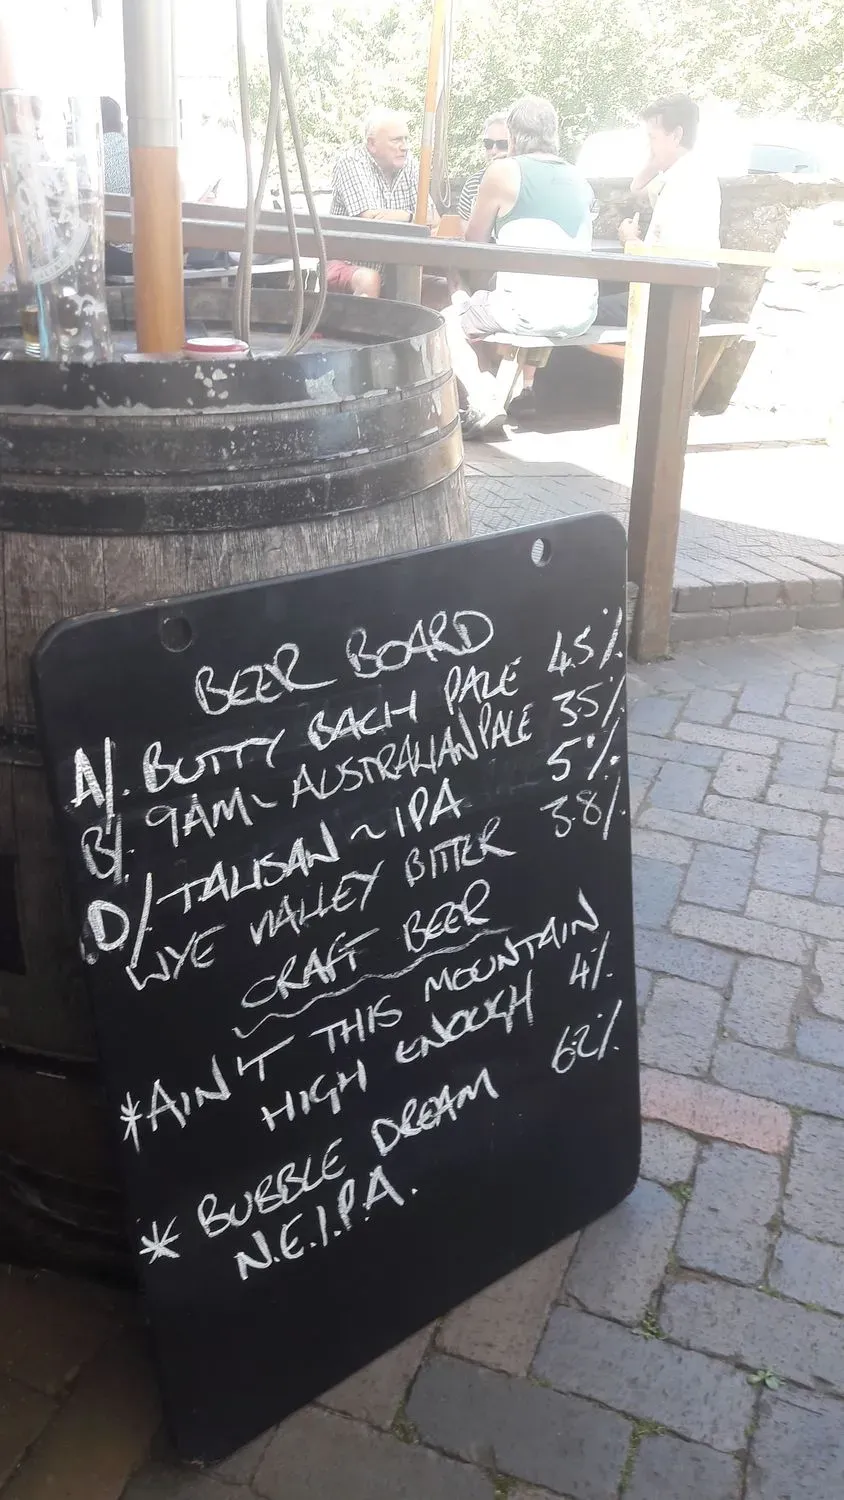 BEER BOARD
A/. BUTTY BACH PALE 4.5%
B/. 9AM ~ AUSTRALIAN PALE 3.5%
D/ TALISAN ~ IPA 5%
WYE VALLEY BITTER 3.8%
CRAFT BEER
*AIN'T THIS MOUNTAIN
HIGH ENOUGH 4%
* BUBBLE DREAM 6.2%
N.E.I.P.A.